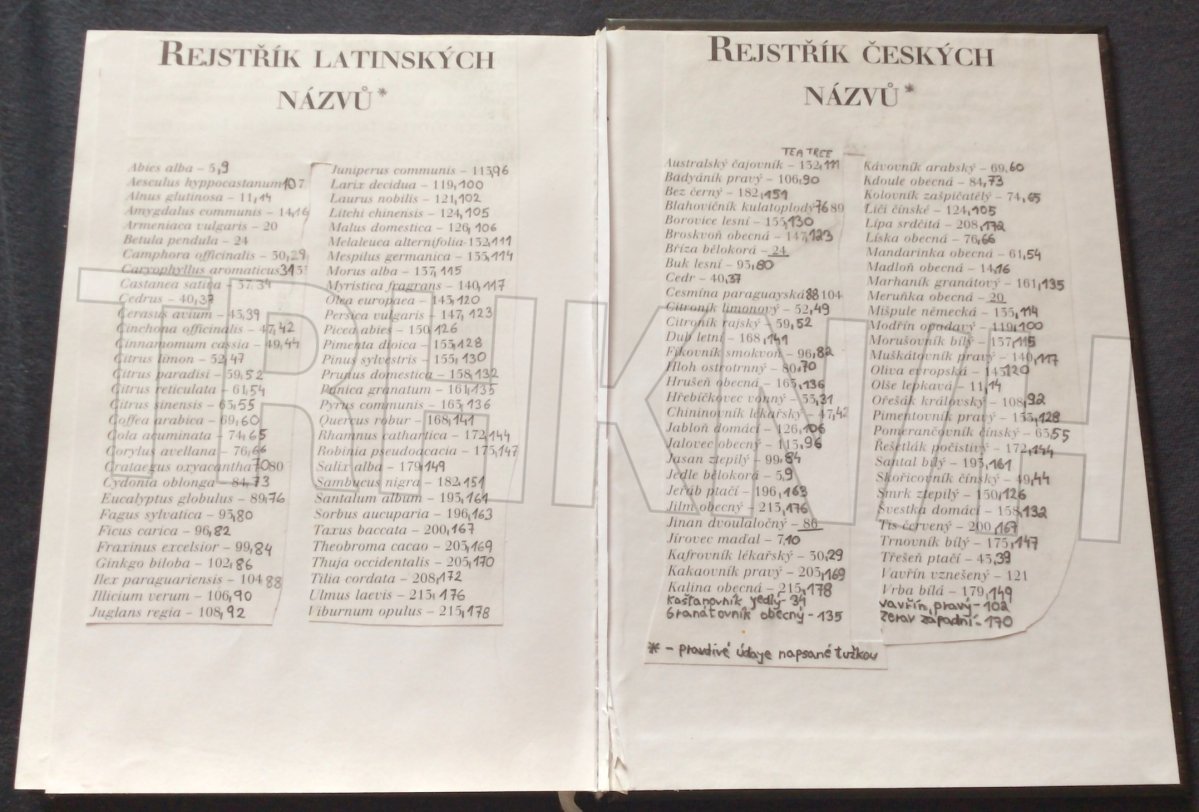 REJSTŘÍK LATINSKÝCH
NÁZVŮ*
Abies alba – 5,9
Aesculus hyppocastanum 107
Alnus glutinosa – 11,14
Amygdalus communis – 14,16
Armeniaca vulgaris – 20
Betula pendula – 24
Camphora officinalis – 30,29
Caryophyllus aromaticus 31
Castanea sativa – 37,34
Cedrus – 40,37
Cerasus avium – 43,39
Cinchona officinalis – 47,42
Cinnamomum cassia – 49,44
Citrus limon – 52,47
Citrus paradisi – 59,52
Citrus reticulata – 61,54
Citrus sinensis – 63,55
Coffea arabica – 69,60
Cola acuminata – 74,65
Corylus avellana – 76,66
Crataegus oxyacantha 70 80
Cydonia oblonga – 84,73
Eucalyptus globulus – 89,76
Fagus sylvatica – 93,80
Ficus carica – 96,82
Fraxinus excelsior – 99,84
Ginkgo biloba – 102,86
Ilex paraguariensis – 104 88
Illicium verum – 106,90
Juglans regia – 108,92
Juniperus communis – 113,96
Larix decidua – 119,100
Laurus nobilis – 121,102
Litchi chinensis – 124,105
Malus domestica – 126,106
Melaleuca alternifolia – 132,111
Mespilus germanica – 135,114
Morus alba – 137,115
Myristica fragrans – 140,117
Olea europaea – 143,120
Persica vulgaris – 147,123
Picea abies – 150,126
Pimenta dioica – 153,128
Pinus sylvestris – 155,130
Prunus domestica – 158,132
Punica granatum – 161,135
Pyrus communis – 163,136
Quercus robur – 168,141
Rhamnus cathartica – 172,144
Robinia pseudoacacia – 175,147
Salix alba – 179,149
Sambucus nigra – 182,151
Santalum album – 193,161
Sorbus aucuparia – 196,163
Taxus baccata – 200,167
Theobroma cacao – 203,169
Thuja occidentalis – 205,170
Tilia cordata – 208,172
Ulmus laevis – 213,176
Viburnum opulus – 215,178
REJSTŘÍK ČESKÝCH
NÁZVŮ*
TEA TREE
Australský čajovník – 132,111
Badyáník pravý – 106,90
Bez černý – 182,151
Blahovičník kulatoplodý 76 89
Borovice lesní – 155,130
Broskvoň obecná – 147,123
Bříza bělokorá – 24
Buk lesní – 93,80
Cedr – 40,37
Cesmína paraguayská 88 104
Citroník limonový – 52,49
Citroník rajský – 59,52
Dub letní – 168,141
Fíkovník smokvoň – 96,82
Hloh ostrotrnný – 80,70
Hrušeň obecná – 163,136
Hřebíčkovec vonný – 33,31
Chininovník lékařský – 47,42
Jabloň domácí – 126,106
Jalovec obecný – 113,96
Jasan ztepilý – 99,84
Jedle bělokorá – 5,9
Jeřáb ptačí – 196,163
Jilm obecný – 213,176
Jinan dvoulaločný – 86
Jírovec maďal – 7,10
Kafrovník lékařský – 30,29
Kakaovník pravý – 203,169
Kalina obecná – 215,178
Kaštanovník jedlý – 34
Granátovník obecný – 135
* – pravdivé údaje napsané tužkou
Kávovník arabský – 69,60
Kdoule obecná – 84,73
Kolovník zašpičatělý – 74,65
Liči čínské – 124,105
Lípa srdčitá – 208,172
Líska obecná – 76,66
Mandarinka obecná – 61,54
Madloň obecná – 14,16
Marhaník granátový – 161,135
Meruňka obecná – 20
Mišpule německá – 135,114
Modřín opadavý – 119,100
Morušovník bílý – 137,115
Muškátovník pravý – 140,117
Oliva evropská – 143,120
Olše lepkavá – 11,14
Ořešák královský – 108,92
Pimentovník pravý – 153,128
Pomerančovník čínský – 63,55
Řešetlák počistivý – 172,144
Santal bílý – 193,161
Skořicovník čínský – 49,44
Smrk ztepilý – 150,126
Švestka domácí – 158,132
Tis červený – 200,167
Trnovník bílý – 175,147
Třešeň ptačí – 43,39
Vavřín vznešený – 121
Vrba bílá – 179,149
Vavřín pravý – 102
Zerav západní – 170